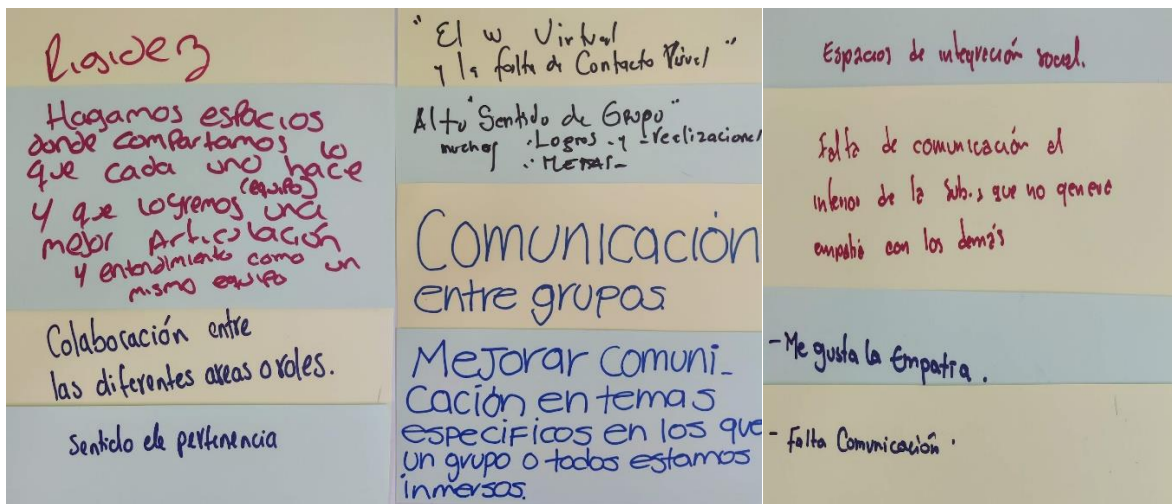 Rigidez
Hagamos espacios
donde compartamos lo
que cada uno hace
(equipo)
y que logremos una
mejor Articulación
y entendimiento como un
mismo equipo
Colaboración entre
las diferentes areas o roles.
Sentido de pertenencia
"El w Virtual
y la falta de Contacto "
Alto "Sentido de Grupo"
muchos · Logros - y - realizaciones
·· METAS -
Comunicación
entre grupos
Mejorar comuni-
cación en temas
especificos en los que
un grupo o todos estamos
inmersos.
Espacios de integración social.
Falta de comunicación al
interior de la Sub. y que no genere
empatía con los demás
- Me gusta la Empatia.
- Falta Comunicación.